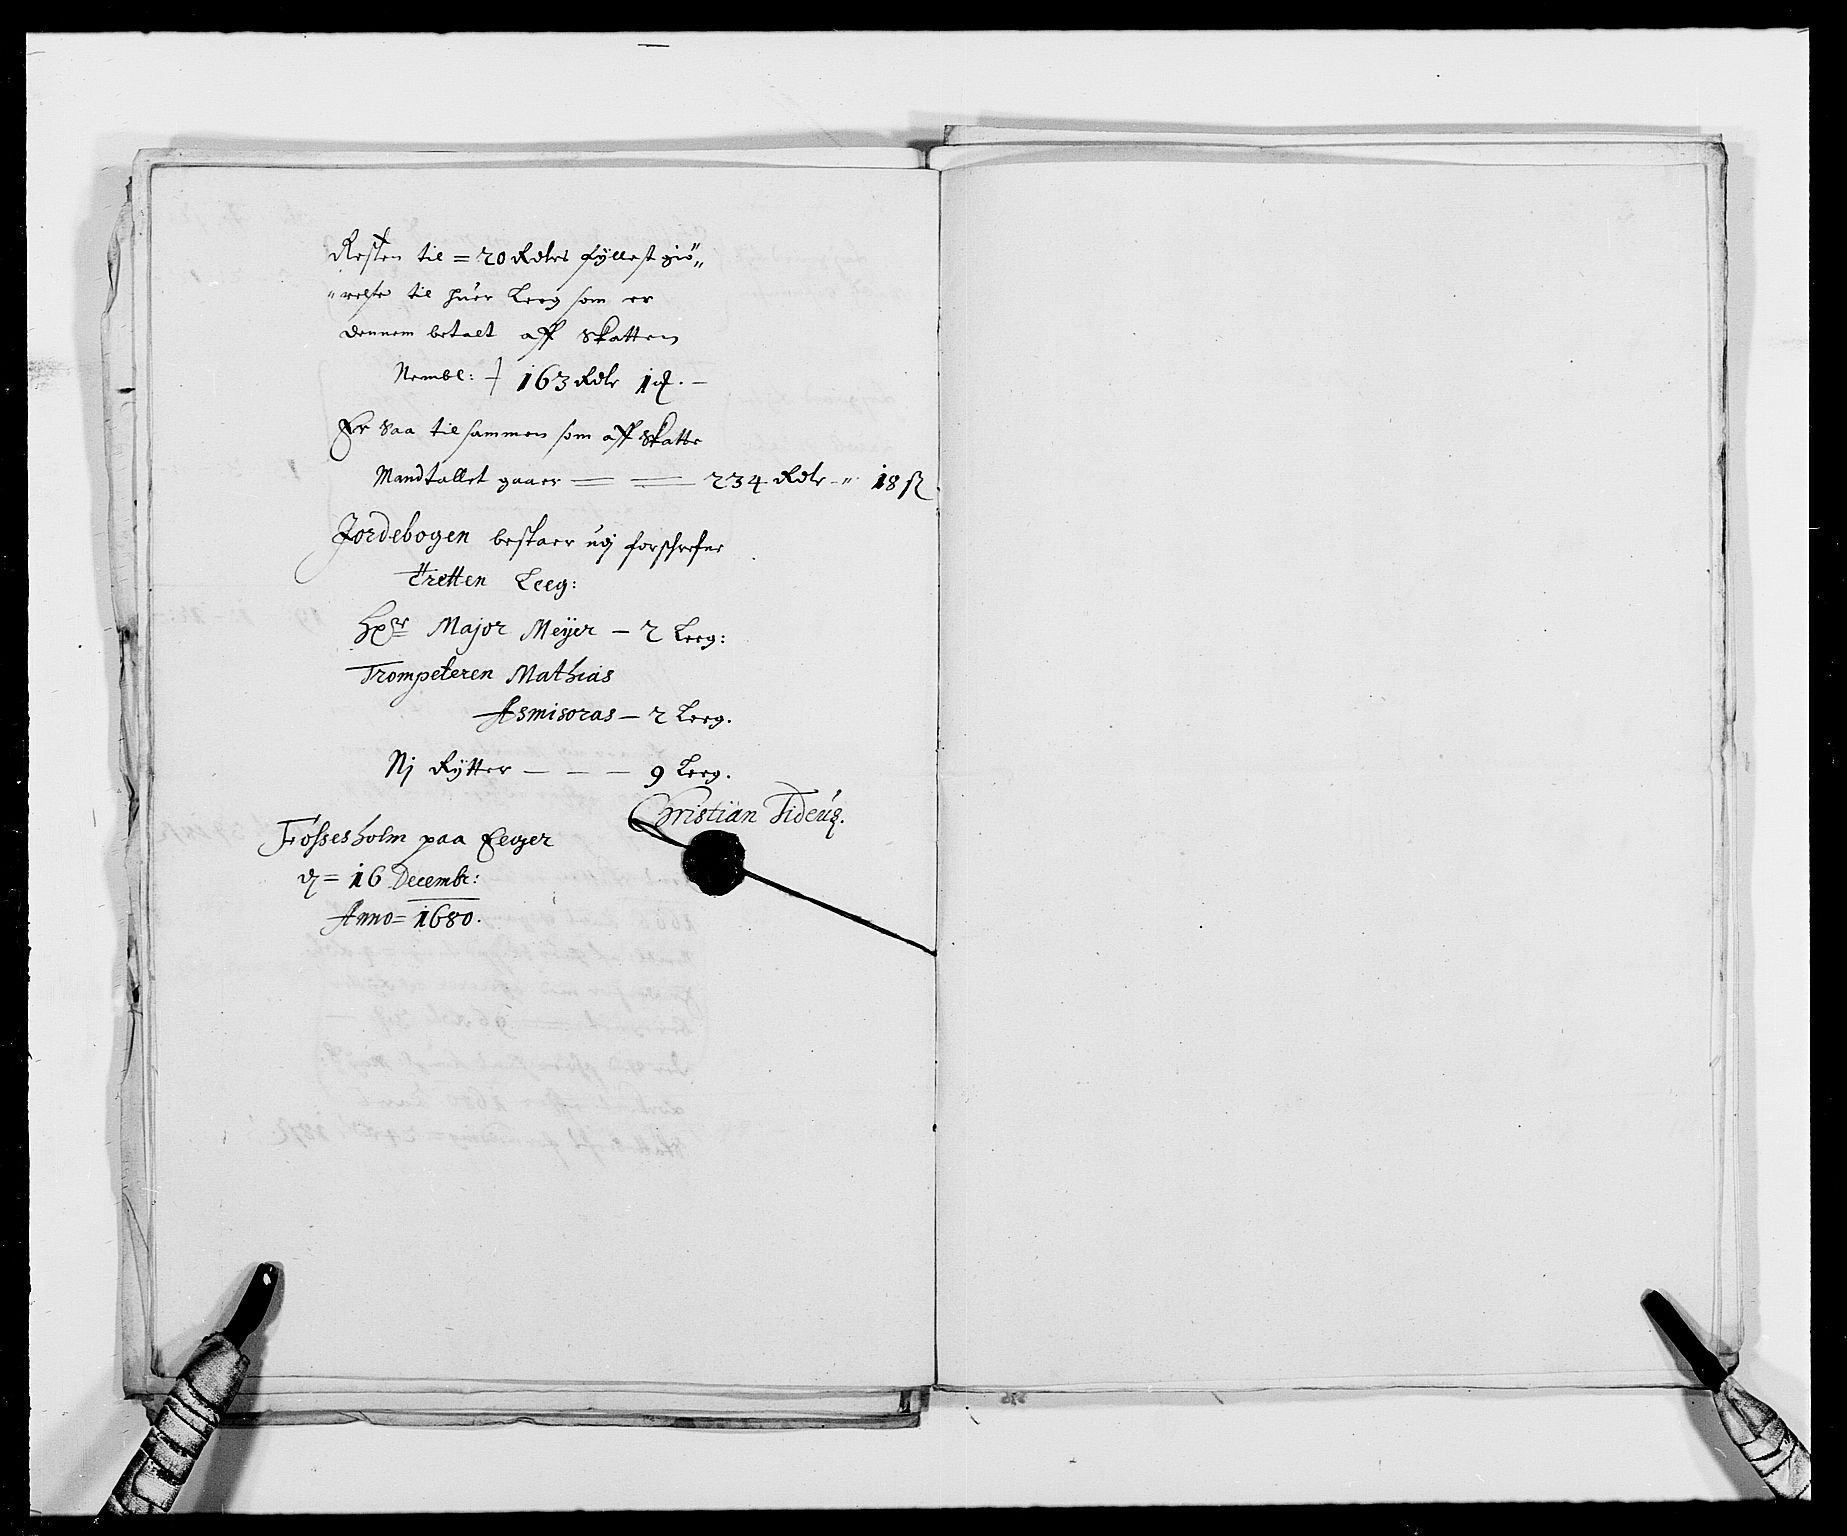 Resten til = 20 Rdlrs fyllest giö„
„relse til huer Leeg som er
dennem betalt aff Skatten
Nembl: 163 Rdlr 1 ₰. —
Er saa tilsammen som aff Skatte
Mandtallet gaaer — — 234 Rdlr - „ 18 ß
Jordebogen bestaer udj forschrefne
tretten Leeg:
Hr Major Meÿer — 2 Leeg:
Trompeteren Mathias
Asmisoras — 2 Leeg.
Nj Rÿtter — — — 9 Leeg.
Christian Tideus.
Fossesholm paa Eeger
d = 16 Decembr:
Anno = 1680.